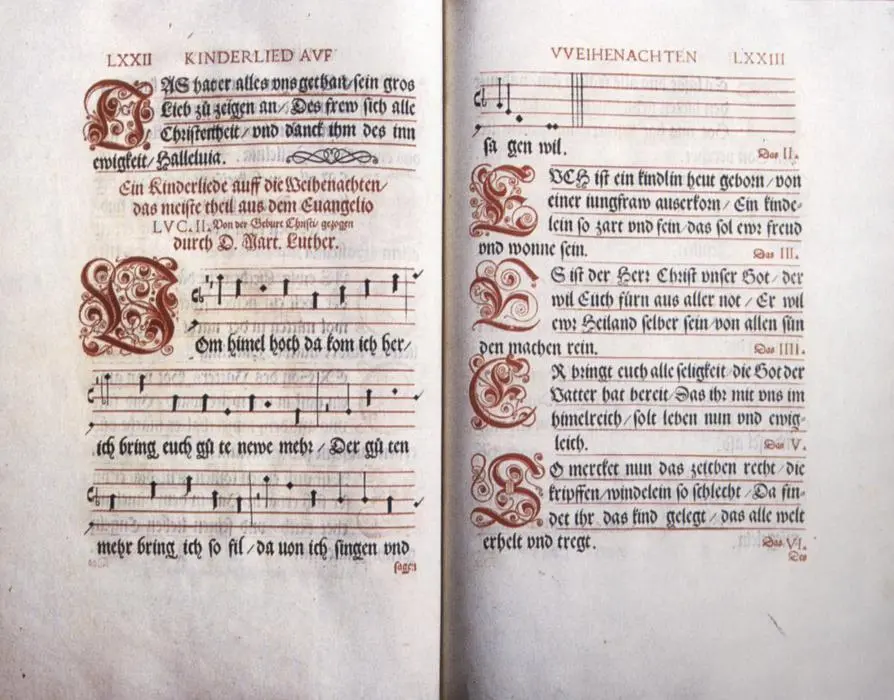 LXXII KINDERLIED AVF
DAS hat er alles vns gethan / sein gros
Lieb zů zeigen an / Des frew sich alle
Christenheit / vnd danck ihm des inn
ewigkeit / Halleluia.
Ein Kinderliede auff die Weihenachten /
das meiste theil aus dem Euangelio
LVC. II. Von der Geburt Christi / gezogen
durch D. Mart. Luther.
VOm himel hoch da kom ich her /
ich bring euch gů te newe mehr / Der gů ten
mehr bring ich so fil / da uon ich singen vnd
sagen
VVEIHENACHTEN LXXIII
sa gen wil.
Das II.
EVCH ist ein kindlin heut geborn / von
einer iungfraw auserkorn / Ein kinde-
lein so zart vnd fein / das sol ewr freud
vnd wonne sein.
Das III.
ES ist der Herr Christ vnser Got / der
wil Euch fürn aus aller not / Er wil
ewr Heiland selber sein / von allen sün
den machen rein.
Das IIII.
ER bringt euch alle seligkeit / die Got der
Vatter hat bereit / Das ihr mit vns im
himelreich / solt leben nun vnd ewig-
leich.
Das V.
SO mercket nun das zeichen recht / die
kripffen / windelein so schlecht / Da fin-
det ihr das kind gelegt / das alle welt
erhelt vnd tregt.
Das VI.
Des